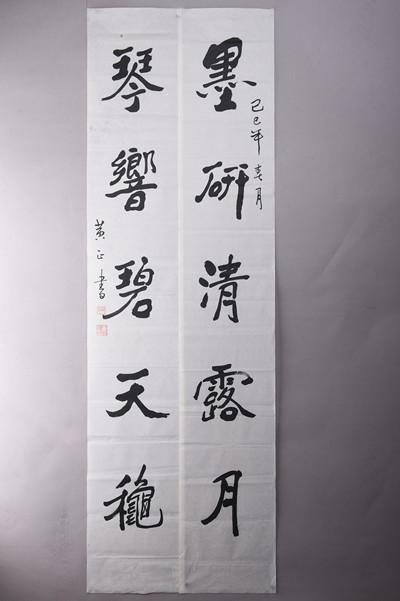 己巳年春月
墨研清露月
琴響碧天龝
黄正書